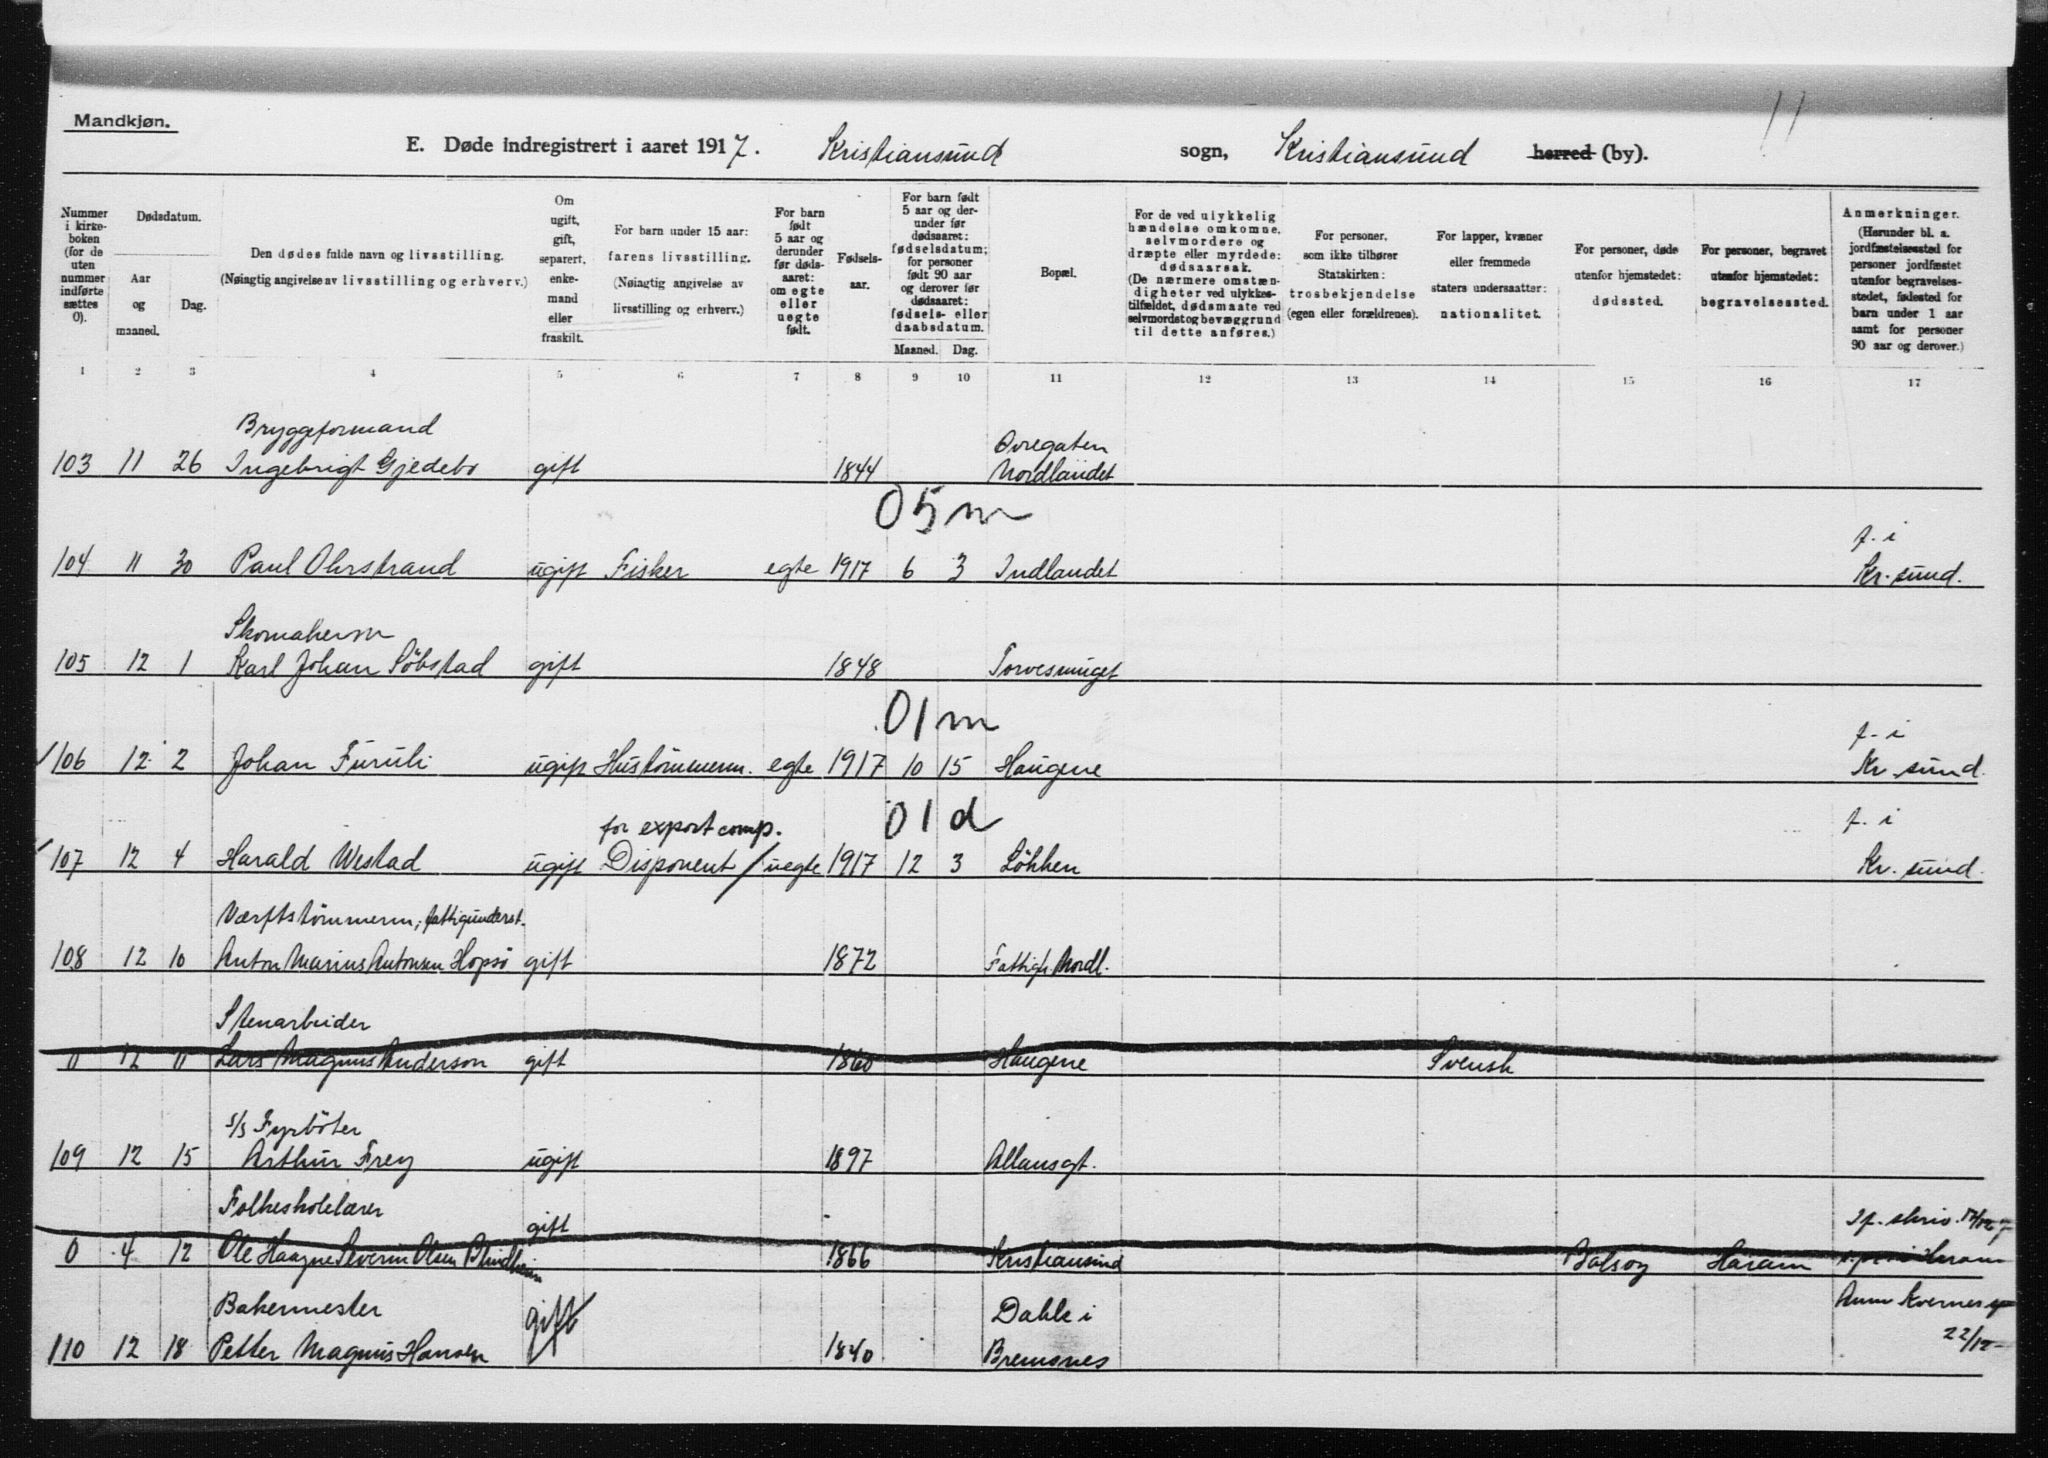 11
Mandkjøn.
E. Døde indregistrert i aaret 1917. Kristiansund sogn, Kristiansund herred (by).
Nummer i kirkeboken (for de uten nummer indførte sættes 0).
Dødsdatum.
Aar og maaned.
Dag.
Den dødes fulde navn og livsstilling.
(Nøiagtig angivelse av livsstilling og erhverv.)
Om ugift, gift, separert, enkemand eller fraskilt.
For barn under 15 aar:
farens livsstilling.
(Nøiagtig angivelse av livsstilling og erhverv.)
For barn født 5 aar og derunder før dødsaaret: om egte eller uegte født.
Fødselsaar.
For barn født 5 aar og derunder før dødsaaret: fødselsdatum; for personer født 90 aar og derover før dødsaaret: fødsels- eller daabsdatum.
Maaned. Dag.
Bopæl.
For de ved ulykkelig hændelse omkomne, selvmordere og dræpte eller myrdede: dødsaarsak.
(De nærmere omstændigheter ved ulykkestilfældet, dødsmaate ved selvmord og bevæggrund til dette anføres.)
For personer, som ikke tilhører Statskirken: trosbekjendelse (egen eller forældrenes).
For lapper, kvæner eller fremmede staters undersaatter: nationalitet.
For personer, døde utenfor hjemstedet: dødssted.
For personer, begravet utenfor hjemstedet: begravelsessted.
Anmerkninger.
(Herunder bl. a. jordfæstelsessted for personer jordfæstet utenfor begravelsesstedet, fødested for barn under 1 aar samt for personer 90 aar og derover.)
1 2 3 4 5 6 7 8 9 10 11 12 13 14 15 16 17
Bryggeformand Øvregaten
103 11 26 Ingebrigt Gjedebo gift 1844 Nordlandet
05 m
f. i
104 11 30 Paul Ohrstrand ugift Fisker egte 1917 6 3 Indlandet Kr. sund.
Skomakerm
105 12 1 Karl Johan Söbstad gift 1848 Torvesmuget
01 m
f. i
106 12 2 Johan Furuli ugift Hustömmerm. egte 1917 10 15 Haugene Kr. sund.
for export comp. 01 d f. i
107 12 4 Harald Westad ugift Disponent / uegte 1917 12 3 Lökken Kr. sund.
Værftstömmerm; fattigunderst.
108 12 10 Anton Marius Antonsen Hopsö gift 1872 Fattigh. Nordl.
Stenarbeider
0 12 11 Lars Magnus Anderson gift 1860 Haugene Svensk
s/s Fyrböter
109 12 15 Arthur Frey ugift 1897 Allansgt.
Folkeskolelærer gift
0 4 12 Ole Haagne Severin Olsen Blindheim 1866 Kristiansund Bolsoy Haram
Bakermester gift Dahle i
22/12
110 12 18 Petter Magnus Hansen 1840 Bremsnes